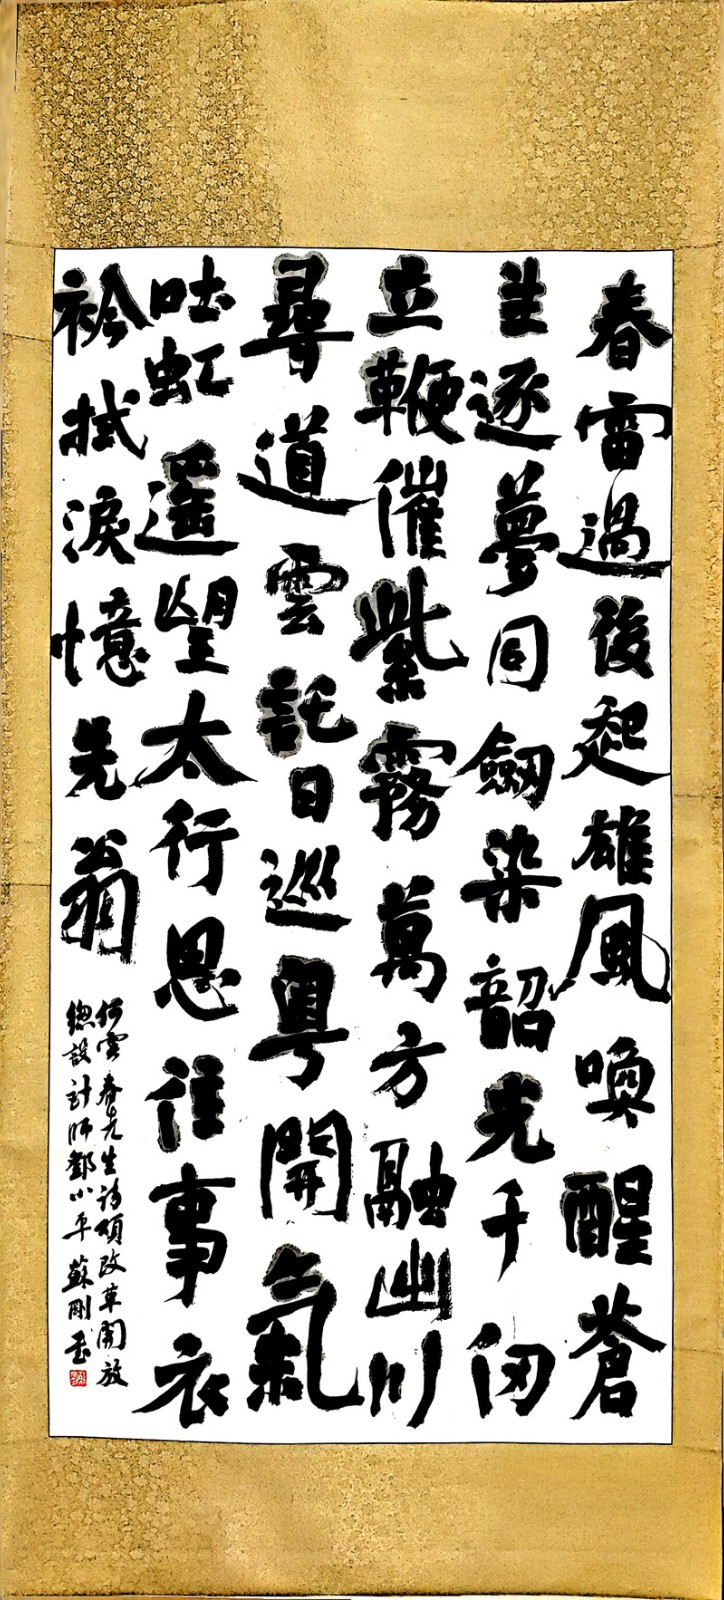 春雷過後起雄風喚醒蒼
生逐夢同劍染韶光千仞
立鞭催紫霧萬方融幽川
尋道雲託日巡粵開氣
吐虹遥望太行思往事衣
衿拭淚憶先翁
何雲春先生詩頌改革開放
總設計師鄧小平 蘇剛書